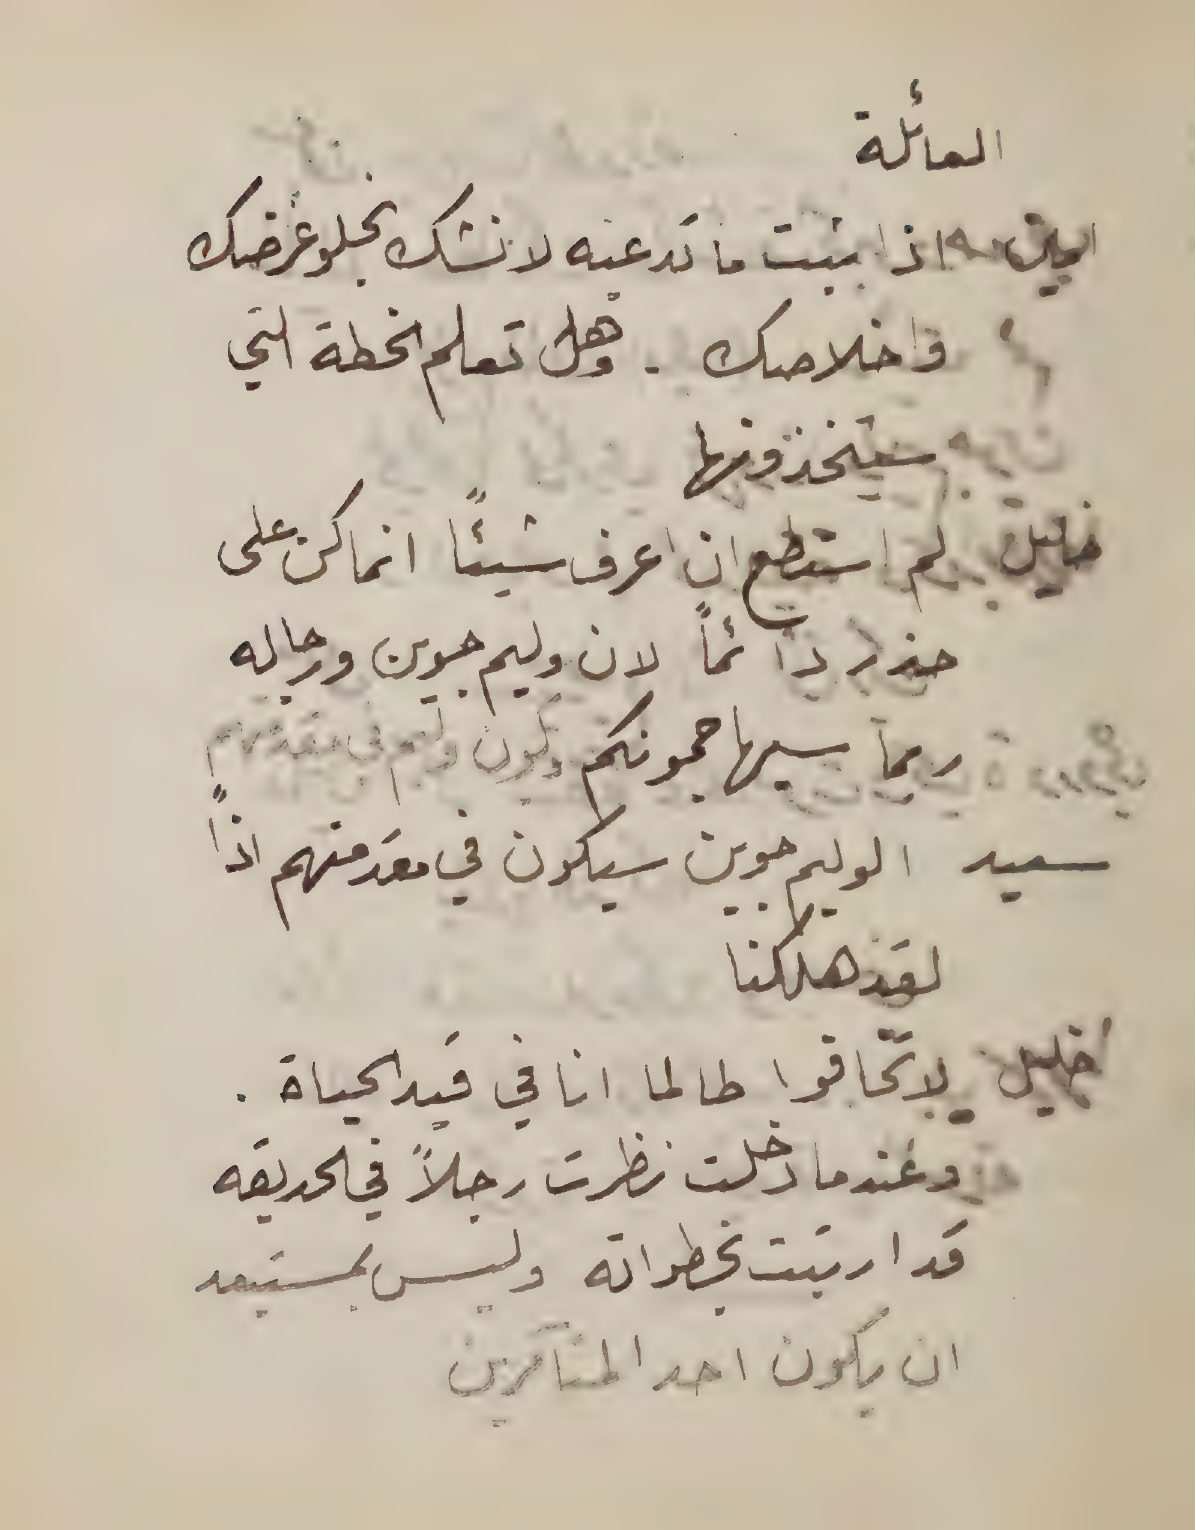 العائلة
اذا ثبتت ما تدعيه لا نشك بخلو غرضك
واخلاصك . وهل تعلم الخطة التي
سيتخذونها
خليل لم استطع ان اعرف شيئًا انما كن على
حذر دائماً لان وليم جوين ورجاله
ربما سيهاجمونكم ويكون وليم في مقدمتهم
سعيد الوليم جوين سيكون في مقدمتهم اذاً
لقد هلكنا
خليل لا تخافوا طالما انا في قيد الحياة .
وعندما دخلت نظرت رجلاً في الحديقه
قد ارتبت بخطواته وليس بمستبعد
ان يكون احد المتآمرين